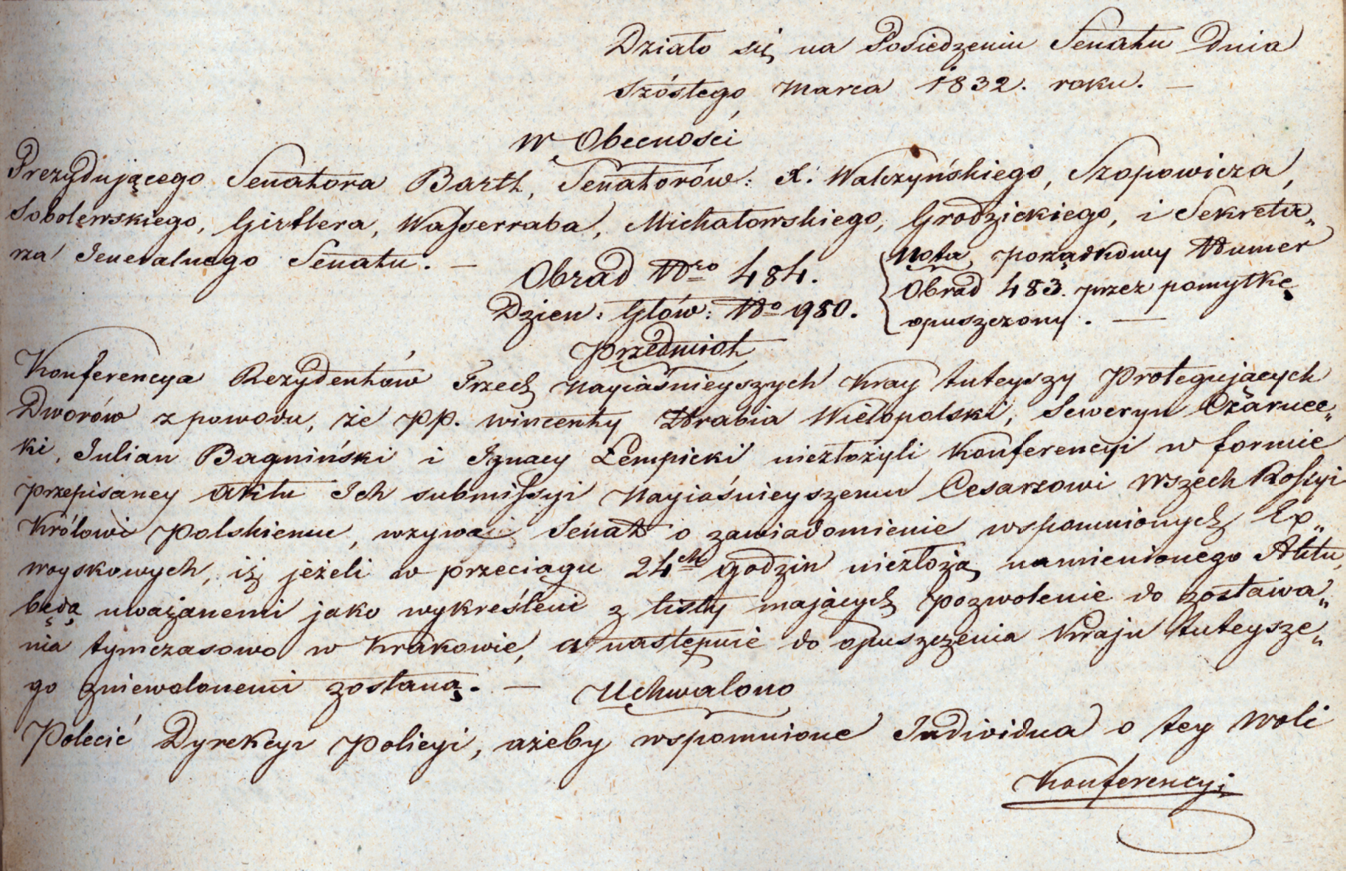 Działo się na Posiedzeniu Senatu Dnia
Szóstego Marca 1832. roku. —
w Obecności
Prezydującego Senatora Bartl, Senatorów: X. Walczyńskiego, Szopowicza,
Sobolewskiego, Girtlera, Wasserraba, Michałowskiego, Grodzickiego, i Sekreta„
rza Jeneralnego Senatu. —
Obrad Nro 484.
Dzien: Głów: No 980.
Nota porządkowy Numer
Obrad 483. przez pomyłkę
opuszczony. —
Przedmiot
Konferencya Rezydentów Trzech Nayiaśnieyszych Kray tuteyszy Protegujących
Dworów z powodu, że PP. Wincenty Hrabia Wielopolski, Seweryn Czarnec„
ki, Julian Bagniński i Ignacy Łempicki niezłożyli Konferencyi w formie
przepisaney Aktu Ich submissyi Nayiaśnieyszemu Cesarzowi Wszech Rossyi
Królowi Polskiemu, wzywa Senat o zawiadomienie wspomnionych Ex„
woyskowych, iż jeżeli w przeciągu 24ch godzin niezłożą namienionego Aktu,
będą uważanemi jako wykreśleni z listy mających pozwolenie do zostawa„
nia tymczasowo w Krakowie, a następnie do opuszczenia Kraju tuteysze„
go zniewolonemi zostaną. — Uchwalono
Polecić Dyrekcyi Policyi, ażeby wspomnione Individua o tey Woli
Konferencyi